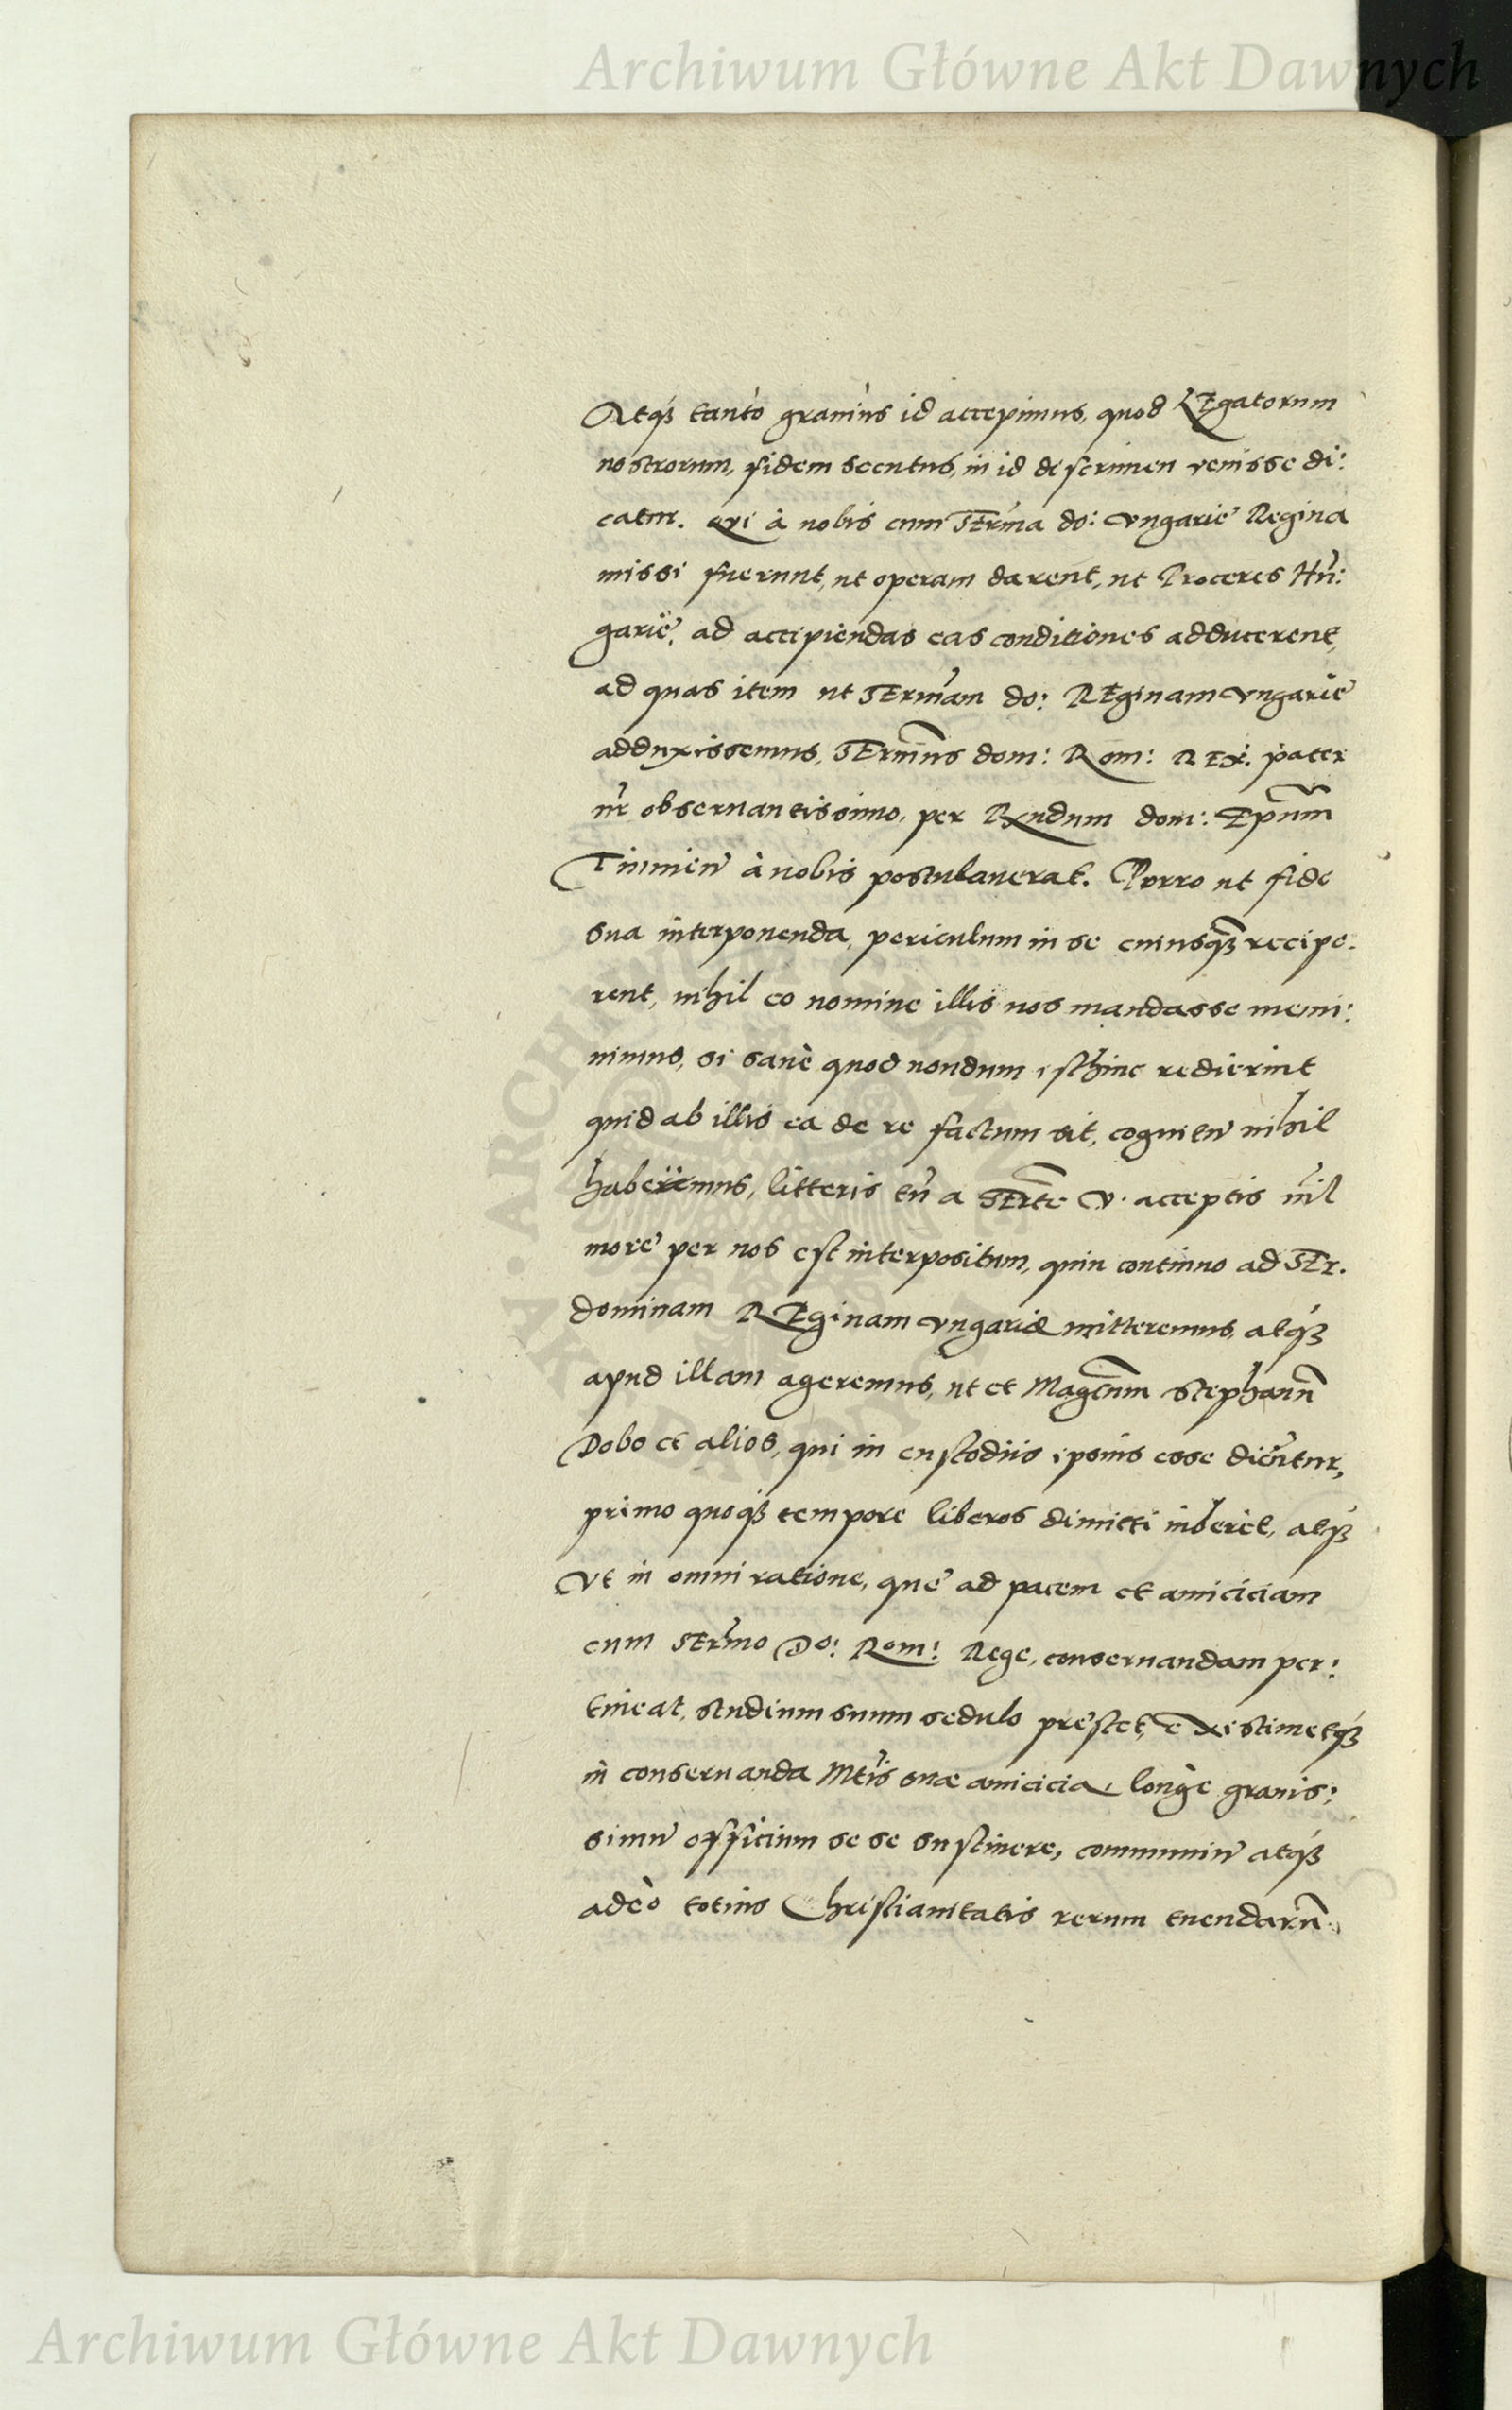 Archiwum Główne Akt Dawnych
Atq3 tantò grauiùs id accepimus, quod LEgatorum
nostrorum, fidem secutus, in id discrimen venisse di:
catur. Qui à nobis cum SErma do: Vngarię Regina
missi fuerunt, ut operam darent, ut Proceres Hũ:
garię, ad accipiendas eas conditiones adducerent,
ad quas item ut SErmam do: REginam Vngarię
adduxissemus, SErmus dom: Rom: REx. pater
nr obseruantissimo, per Rxndum dom: Epum
Tinnien à nobis postulauerat. Porro ut fide
sua interponenda, periculum in se cuiusq3 recipe-
rent, nihil eo nomine illis nos mandasse memi:
nimus, si sanè quod nondum isthinc redierint
quid ab illis ea de re factum sit, cognitu nihil
haberemus, litteris tñ a SErte V. acceptis nil
morę per nos est interpositum, quin continuo ad SEr.
dominam REginam Vngariæ mitteremus, atq3
apud illam ageremus, ut et Magcum Stephanũ
Dobo et alios, qui in custodiis ipsius esse dicũtur,
primo quoq3 tempore liberos dimitti iuberet, atq3
Vt in omni ratione, quę ad pacem et amiciciam
cum SErmo Do: Rom: Rege, conseruandam per:
tineat, studium suum sedulo pręstet, existimetq3
in conseruanda Mtis suæ amicicia, longè grauis:
simũ officium se se sustinere, communiũ atq3
adeò totius Christianitatis rerum tuendarũ.
ARCHIWUM GŁÓWNE AKT DAWNYCH
Archiwum Główne Akt Dawnych